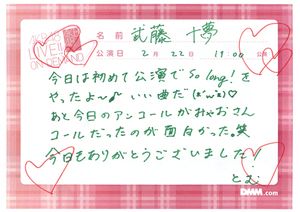 AKB48
LIVE!!
ON DEMAND
名前 武藤 十夢
公演日 2月 22日 19:00 公演
今日は初めて公演でSo long!を
やったよ〜♪いい曲だ(*´ω`*)♡
あと今日のアンコールがみゃおさん
コールだったのが面白かった。笑
今日もありがとうございました!!
とむ
DMM.com